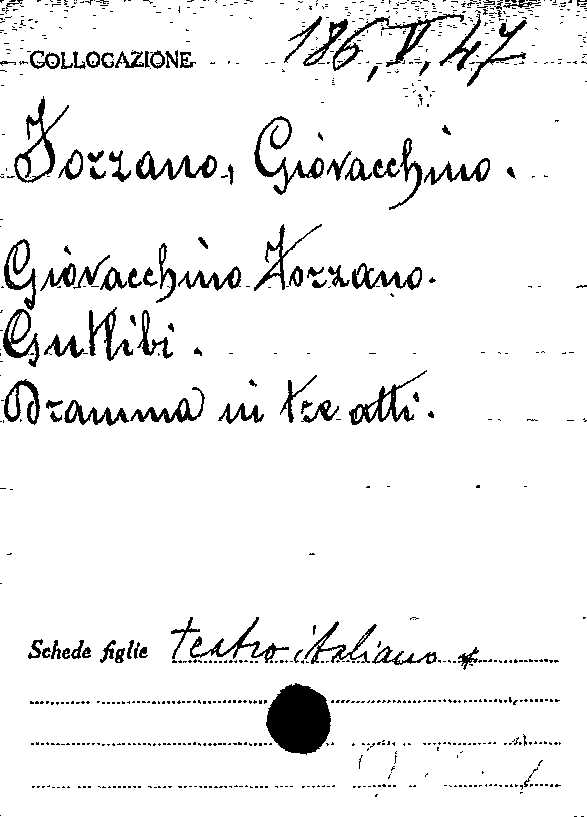 COLLOCAZIONE 186, V, 47
Forzano, Giovacchino.
Giovacchino Forzano.
Gutlibi.
Dramma in tre atti.
Schede figlie teatro italiano *